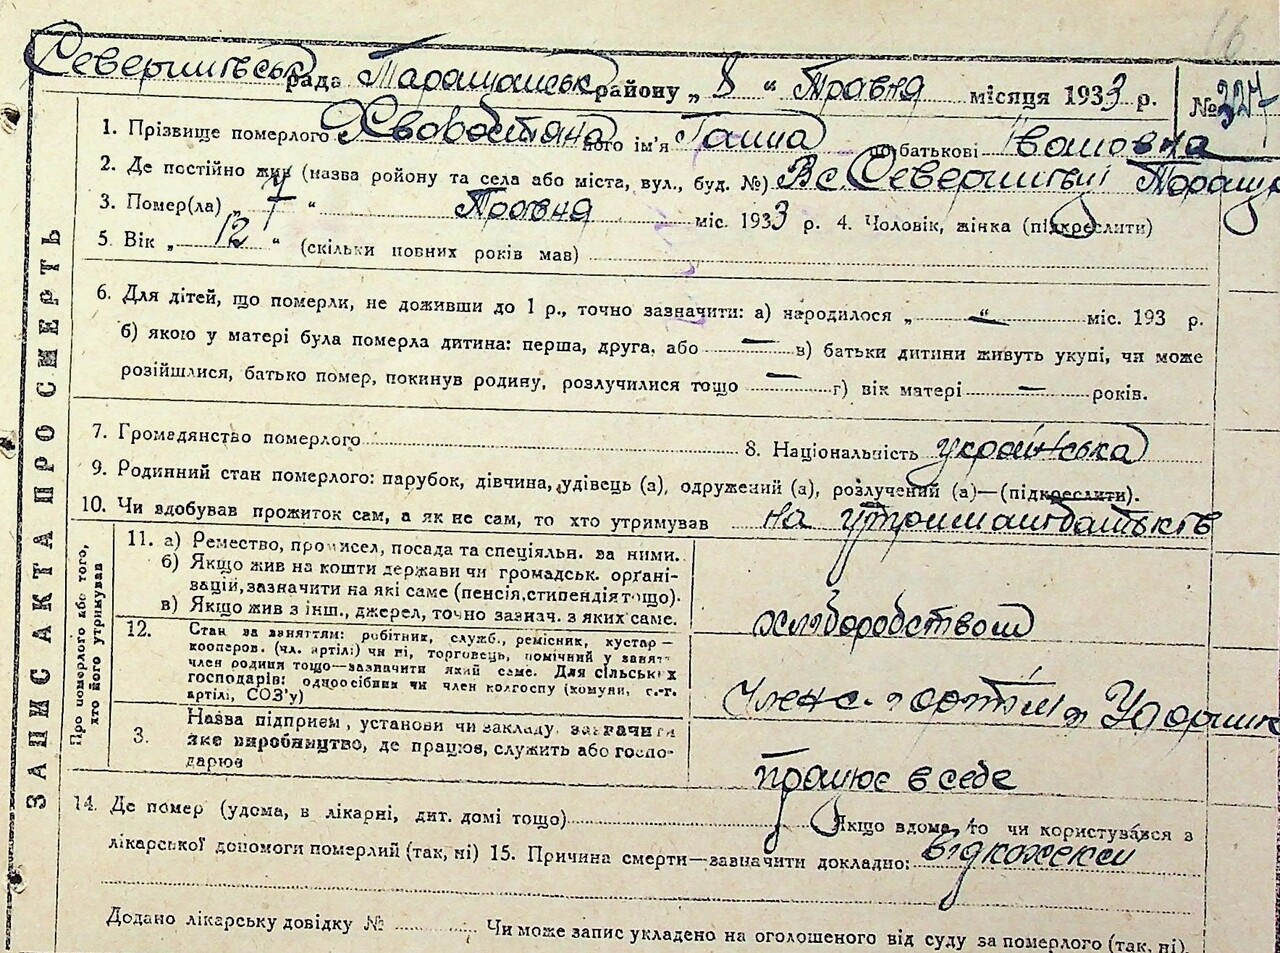 16
Северинівська рада Таращанськ району „ 8 “ Травня місяця 1933 р. № 327
1. Прізвище померлого Хвовостяна його ім'я Ганна по батькові Івановна
2. Де постійно жив (назва ройону та села або міста, вул., буд. №) В с. Северинівці Таращ
3. Помер(ла) „ 7 “ Травня міс. 1933 р. 4. Чоловік, жінка (підкреслити)
5. Вік „ 12 “ (скільки повних років мав)
6. Для дітей, що померли, не доживши до 1 р., точно зазначити: а) народилося „ — “ міс. 193 р.
б) якою у матері була померла дитина: перша, друга, або — в) батьки дитини живуть укупі, чи може
розійшлися, батько помер, покинув родину, розлучилися тощо — г) вік матері — років.
7. Громадянство померлого 8. Національність українська
9. Родинний стан померлого: парубок, дівчина, удівець (а), одружений (а), розлучений (а)—(підкреслити).
10. Чи здобував прожиток сам, а як не сам, то хто утримував на утриман батьків
ЗАПИС АКТА ПРО СМЕРТЬ
Про померлого або того, хто його утримував
11. а) Ремество, промисел, посада та спеціяльн. за ними.
б) Якщо жив на кошти держави чи громадськ. орґані-
зацій, зазначити на які саме (пенсія, стипендія тощо).
в) Якщо жив з інш., джерел, точно зазнач. з яких саме.
хліборобством
12. Стан за заняттям: робітник, служб., ремісник, кустар—
кооперов. (чл. артілі) чи ні, торговець, помічний у занят.
член родини тощо—зазначити який саме. Для сільських
господарів: одноосібник чи член колгоспу (комуни, с.-г.
артілі, СОЗ'у)
Член с. г артілі Ударник
3. Назва підприєм, установи чи закладу, зазначити
яке виробництво, де працює, служить або госпо-
дарює
працює в себе
14. Де помер (удома, в лікарні, дит. домі тощо) Якщо вдома, то чи користувався з
лікарської допомоги померлий (так, ні) 15. Причина смерти—зазначити докладно: від кохекси
Додано лікарську довідку № Чи може запис укладено на оголошеного від суду за померлого (так, ні).